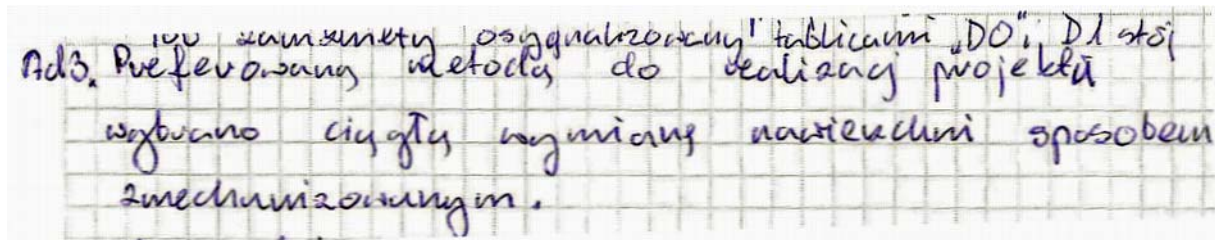 zamknięty osygnalizowany tablicami „DO" i D1 stój
Ad3. Preferowaną metodą do realizacj projektu
wybrano ciągłą wymianę nawierzchni sposobem
zmechanizowanym.